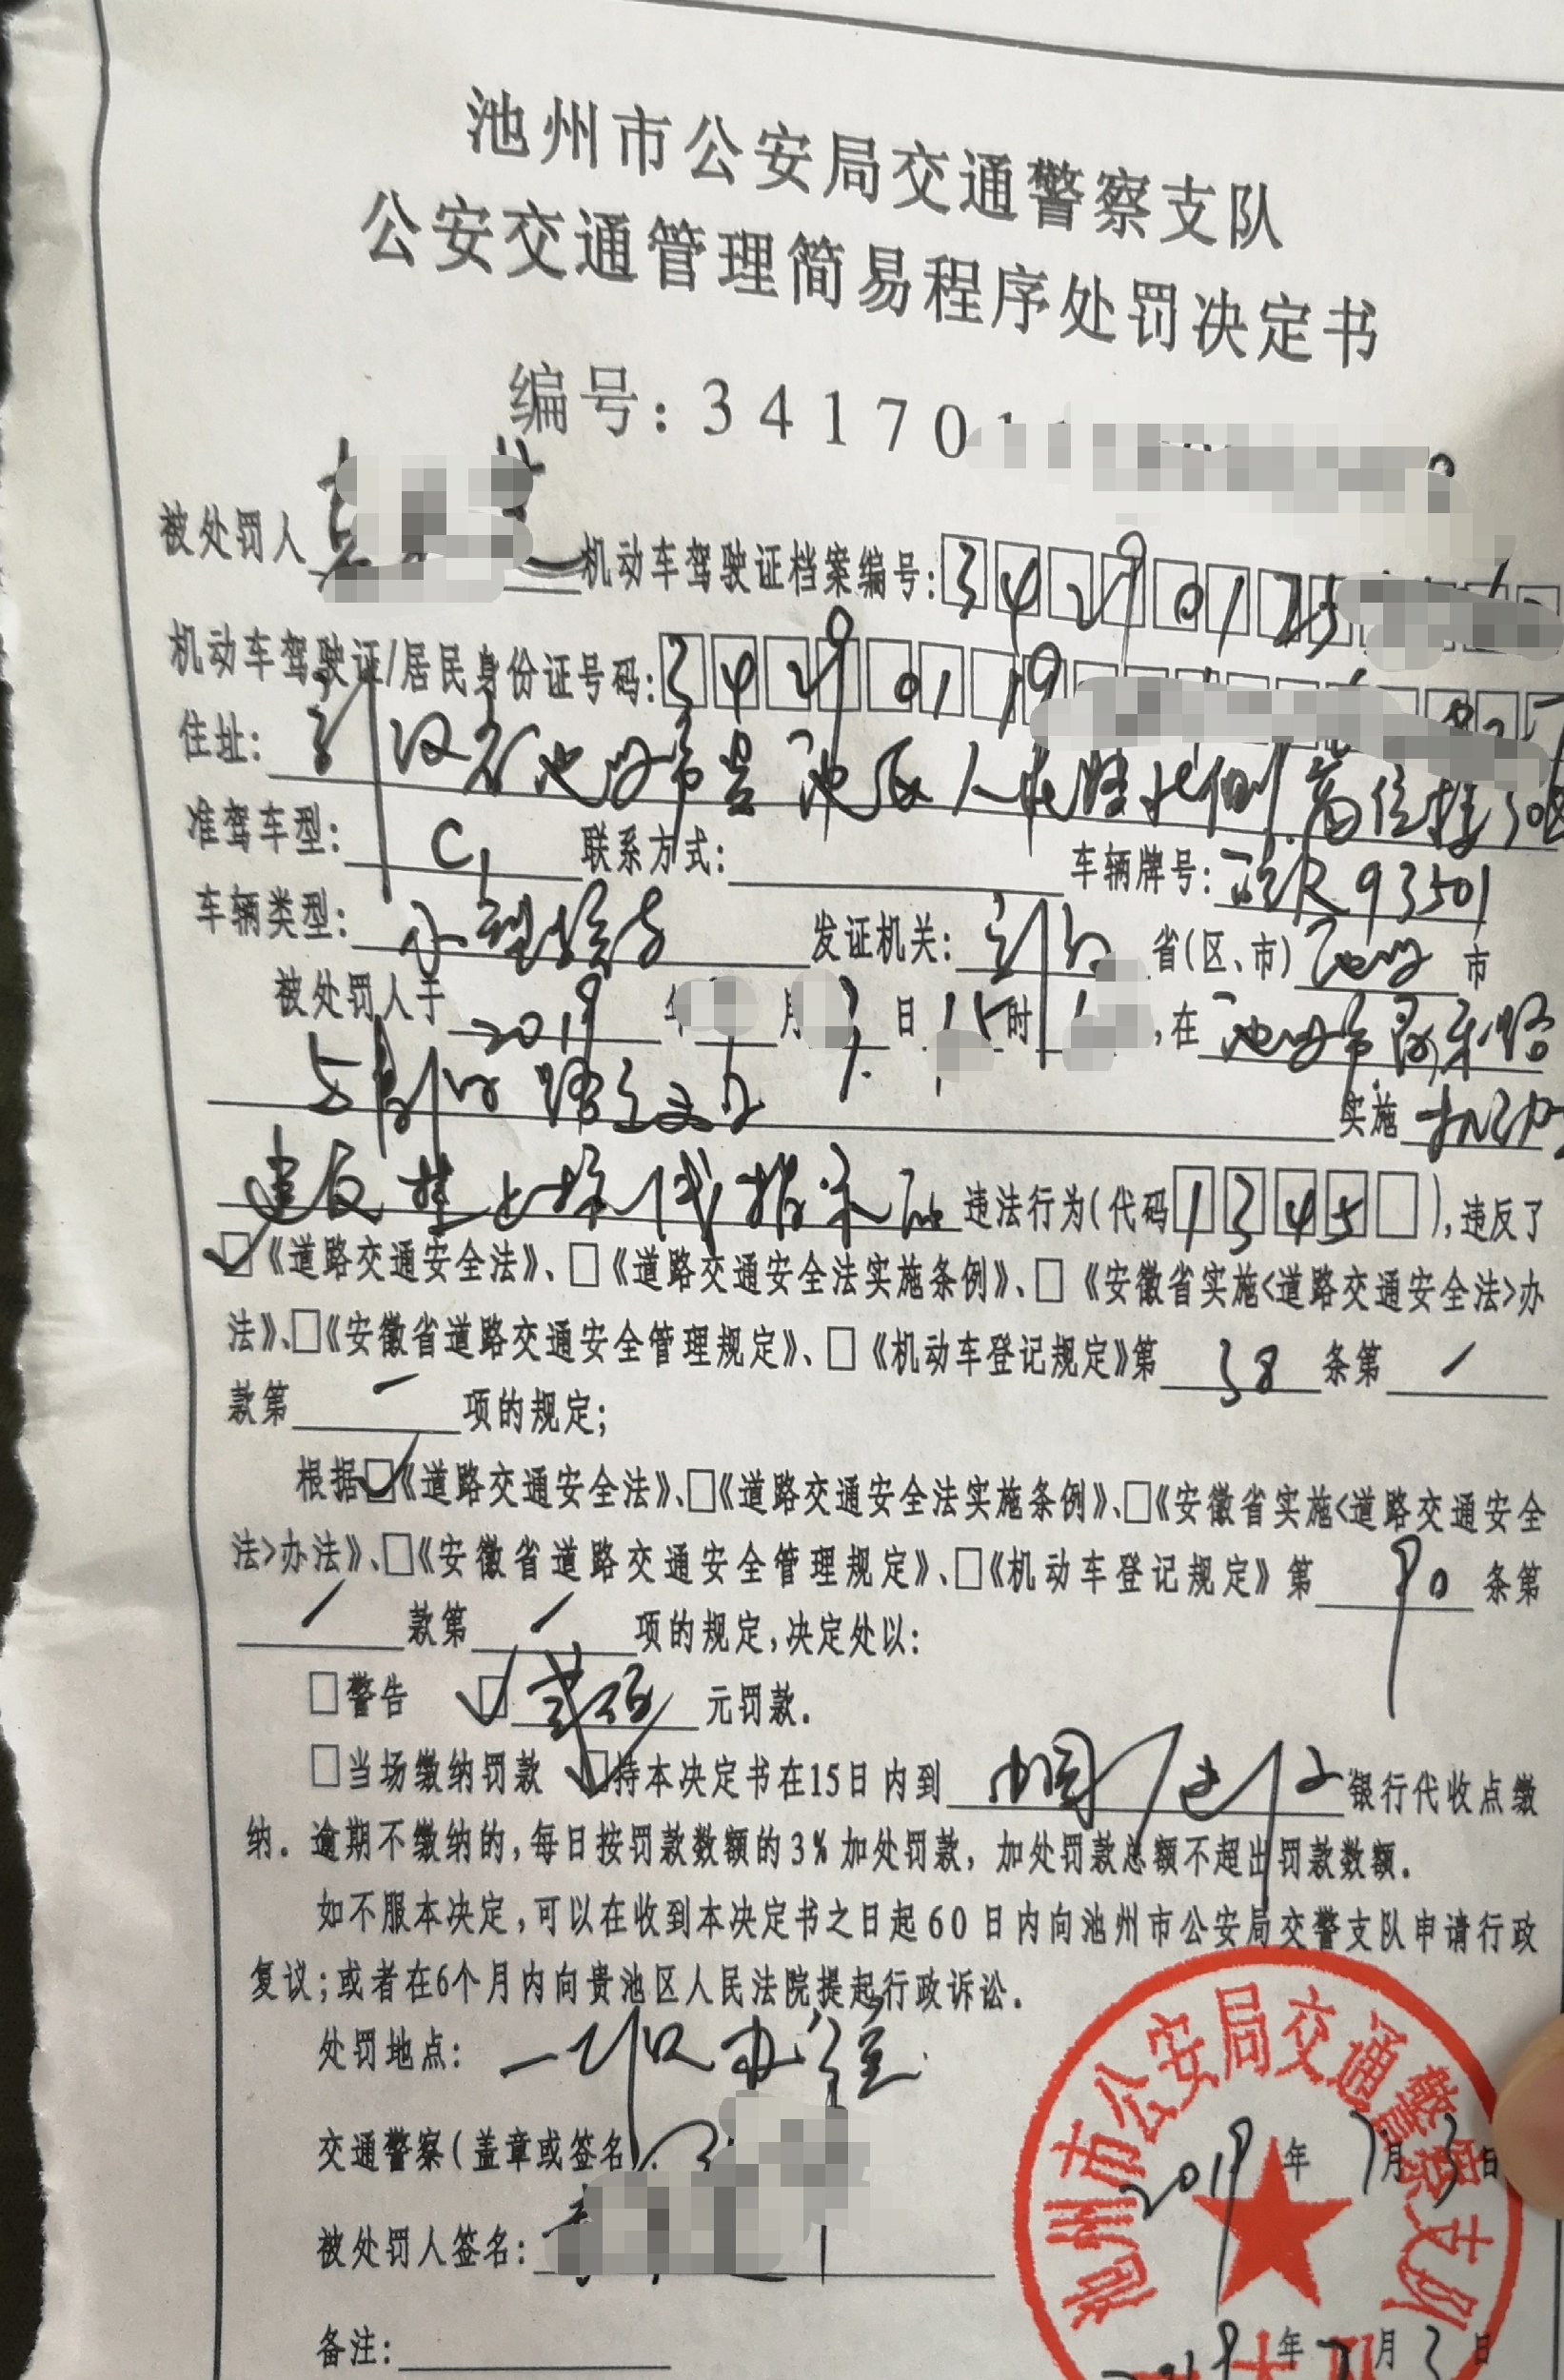 池州市公安局交通警察支队
公安交通管理简易程序处罚决定书
编号:34170
被处罚人 机动车驾驶证档案编号:34290123
机动车驾驶证/居民身份证号码:34290119
住址: 池州市贵池区人民路北侧
准驾车型: C1 联系方式: 车辆牌号:皖R93501
车辆类型: 小型 发证机关: 省(区、市) 池州 市
被处罚人于 2019 年 月 日 15 时 ,在 池州市
路交叉口 实施 机动车
违反禁止标线指示的 违法行为(代码1345 ),违反了
《道路交通安全法》、□《道路交通安全法实施条例》、□《安徽省实施<道路交通安全法>办
法》、□《安徽省道路交通安全管理规定》、□《机动车登记规定》第 38 条第 /
款第 一 项的规定;
根据☑《道路交通安全法》、□《道路交通安全法实施条例》、□《安徽省实施<道路交通安全
法>办法》、□《安徽省道路交通安全管理规定》、□《机动车登记规定》第 90 条第
/ 款第 / 项的规定,决定处以:
□警告 ☑ 贰佰 元罚款.
□当场缴纳罚款 ☑持本决定书在15日内到 银行代收点缴
纳.逾期不缴纳的,每日按罚款数额的3%加处罚款,加处罚款总额不超出罚款数额.
如不服本决定,可以在收到本决定书之日起60日内向池州市公安局交警支队申请行政
复议;或者在6个月内向贵池区人民法院提起行政诉讼.
处罚地点:
交通警察(盖章或签名)
2019年 月3日
被处罚人签名:
池州市公安局交通警察支队
备注:
年 月3日